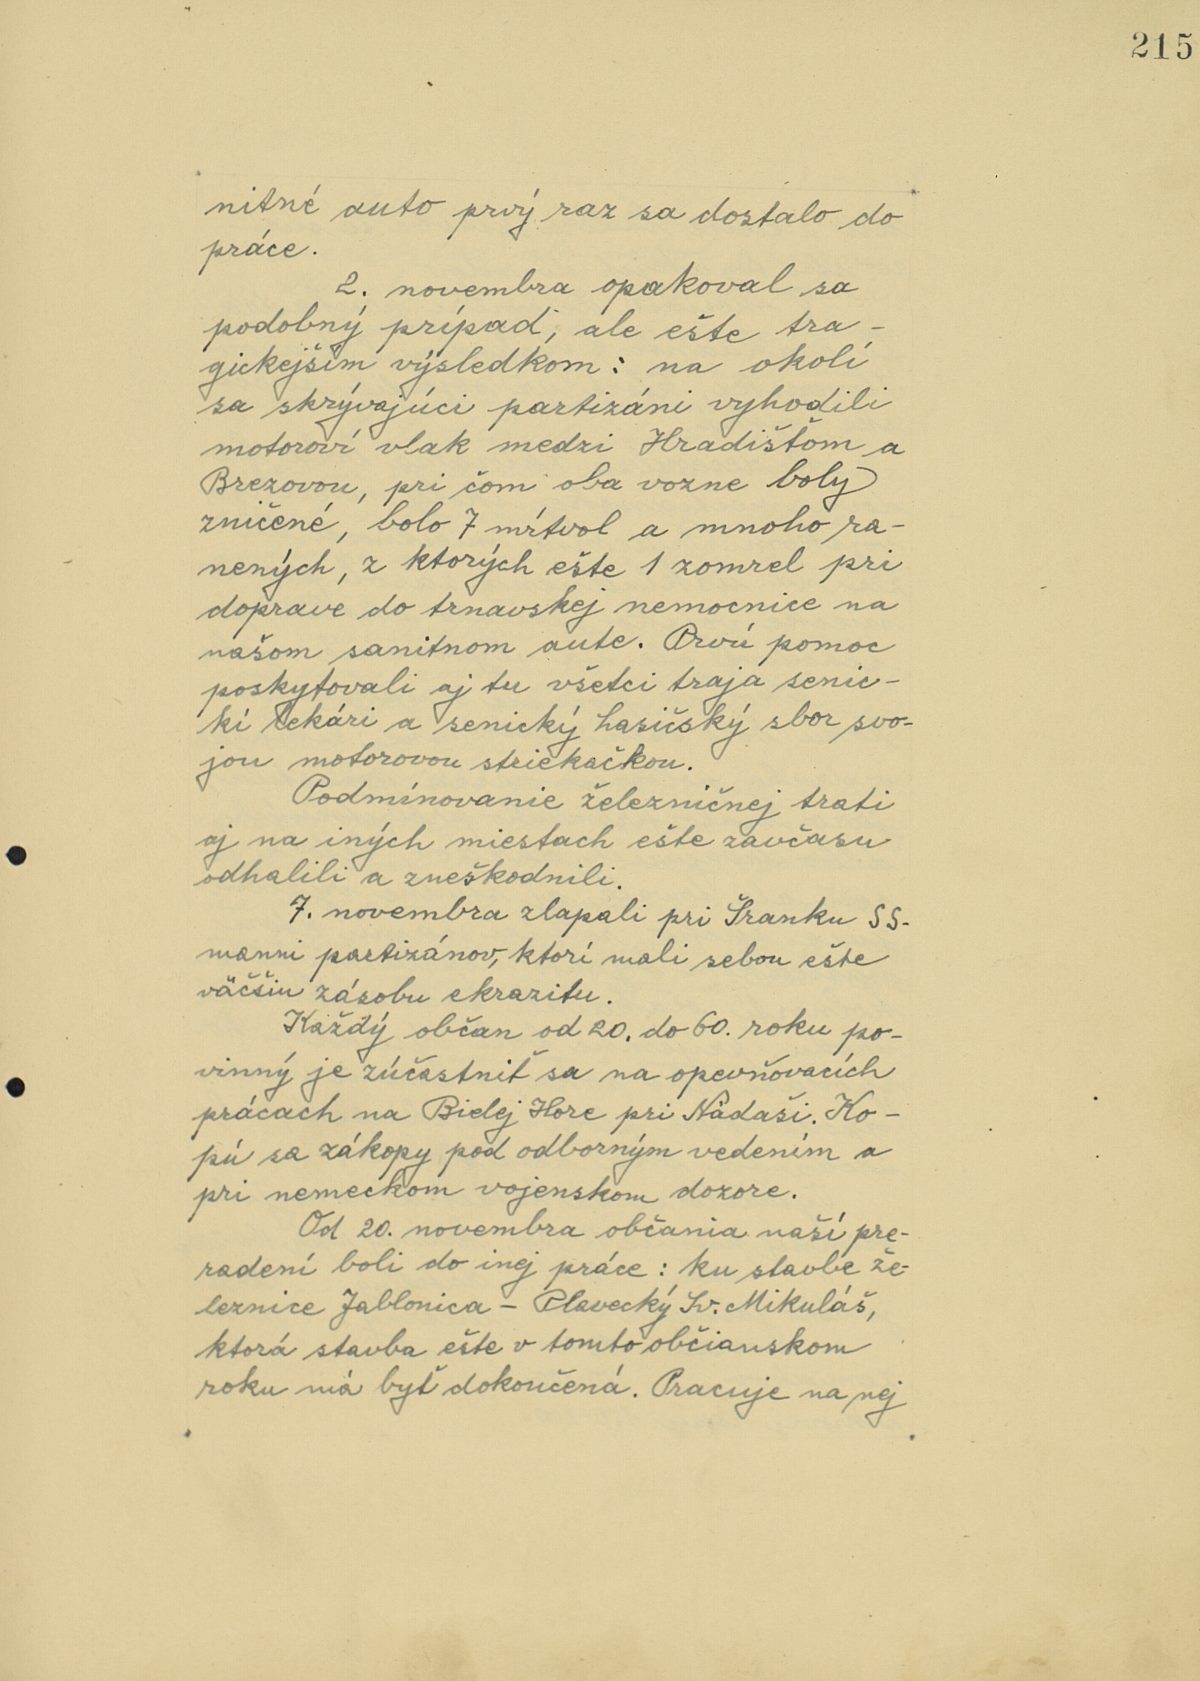 215
nitné auto prvý raz sa dostalo do
práce.
2. novembra opakoval sa
podobný prípad, ale ešte tra-
gickejším výsledkom: na okolí
sa skrývajúci partizáni vyhodili
motoroví vlak medzi Hradišťom a
Brezovou, pri čom oba vozne boly
zničené, bolo 7 mŕtvol a mnoho ra-
nených, z ktorých ešte 1 zomrel pri
doprave do trnavskej nemocnice na
našom sanitnom aute. Prvú pomoc
poskytovali aj tu všetci traja senic-
kí lekári a senický hasičský sbor svo-
jou motorovou striekačkou.
Podmínovanie železničnej trati
aj na iných miestach ešte zavčasu
odhalili a zneškodnili.
7. novembra zlapali pri Šranku SS-
manni partizánov, ktorí mali sebou ešte
väčšiu zásobu ekrazitu.
Každý občan od 20. do 60. roku po-
vinný je zúčastniť sa na opevňovacích
prácach na Bielej Hore pri Nádaši. Ko-
pú sa zákopy pod odborným vedením a
pri nemeckom vojenskom dozore.
Od 20. novembra občania naší pre-
radení boli do inej práce: ku stavbe že-
leznice Jablonica - Plavecký Sv. Mikuláš,
ktorá stavba ešte v tomto občianskom
roku má byť dokončená. Pracuje na nej